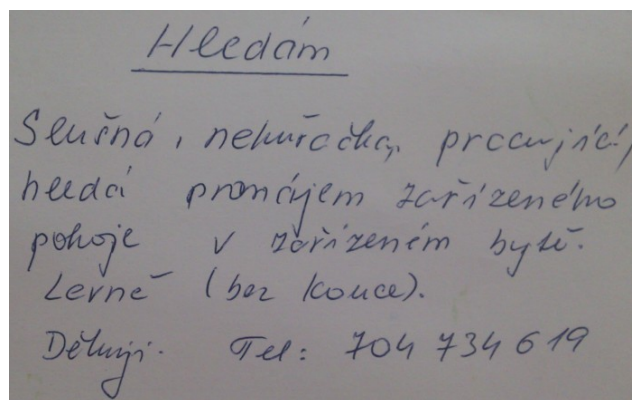 Hledám
Slušná, nekuřačka, pracující,
hledá pronájem zařízeného
pokoje v zařízeném bytě.
Levně (bez kauce).
Děkuji. Tel: 704 734 619